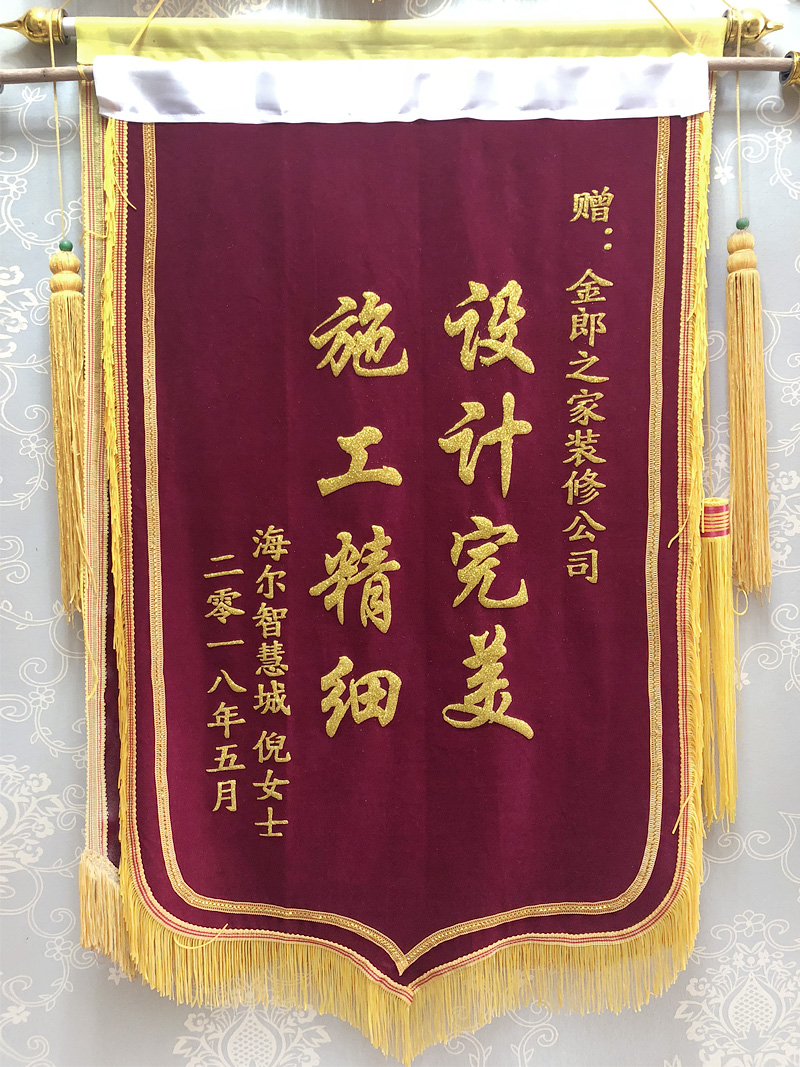 赠：金郎之家装修公司
设计完美
施工精细
海尔智慧城 倪女士
二零一八年五月